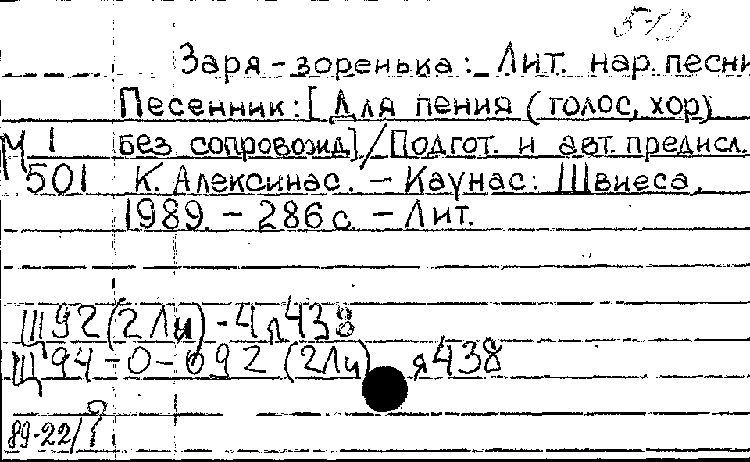 5-13
Заря-зоренька: Лит. нар. песни
Песенник: [Для пения (голос, хор)
М 1 без сопровожд]/Подгот. и авт. предисл.
501 К. Алексинас. - Каунас: Швиеса,
1989. - 286 с. - Лит.
Щ92(2Ли)-4я438
Щ94-0-692(2Ли) я438
89-22/?